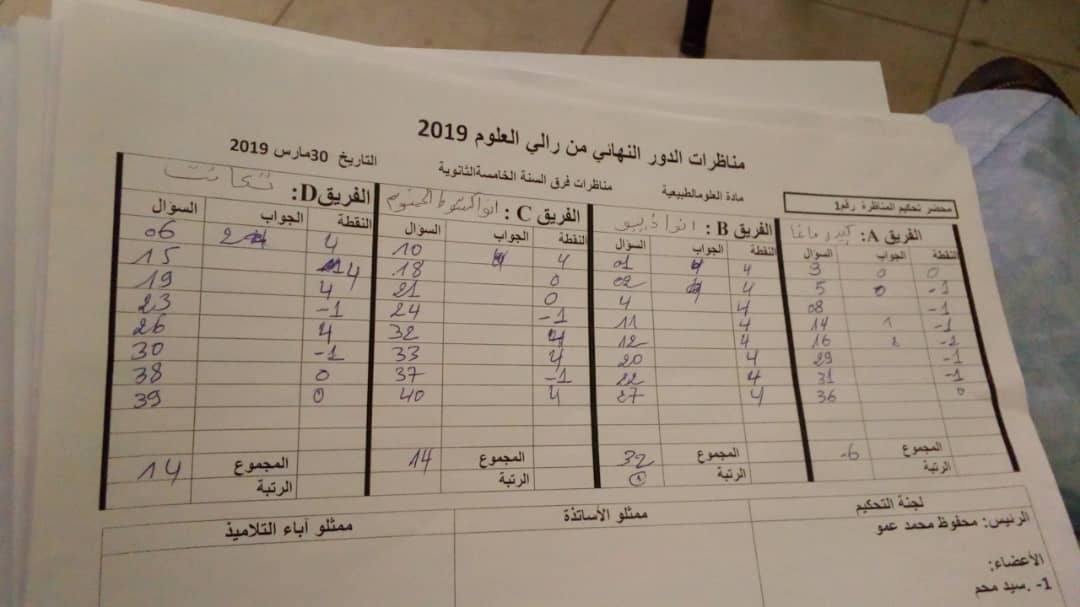 مناظرات الدور النهائي من رالي العلوم 2019
محضر تحكيم المناظرة رقم1
مادة العلومالطبيعية
مناظرات فرق السنة الخامسةالثانوية
التاريخ 30مارس 2019
الفريق A:
السؤال الجواب النقطة
3 0 0
5 0 -1
08 -1
14 -1
16 -2
29 -1
31 -1
36 0
المجموع -6
الرتبة
الفريق B: انواذيبو
السؤال الجواب النقطة
01 4
02 4
4 4
11 4
12 4
20 4
22 4
27 4
المجموع 32
الرتبة
الفريق C: انواكشوط
السؤال الجواب النقطة
10 4
18 0
21 0
24 -1
32 4
33 4
37 -1
40 4
المجموع 14
الرتبة
الفريقD:
السؤال الجواب النقطة
06 4
15 4
19 4
23 -1
26 4
30 -1
38 0
39 0
المجموع 14
الرتبة
لجنة التحكيم
ممثلو الأساتذة
ممثلو آباء التلاميذ
الرئيس: محفوظ محمد عمو
الأعضاء:
1- .سيد محم